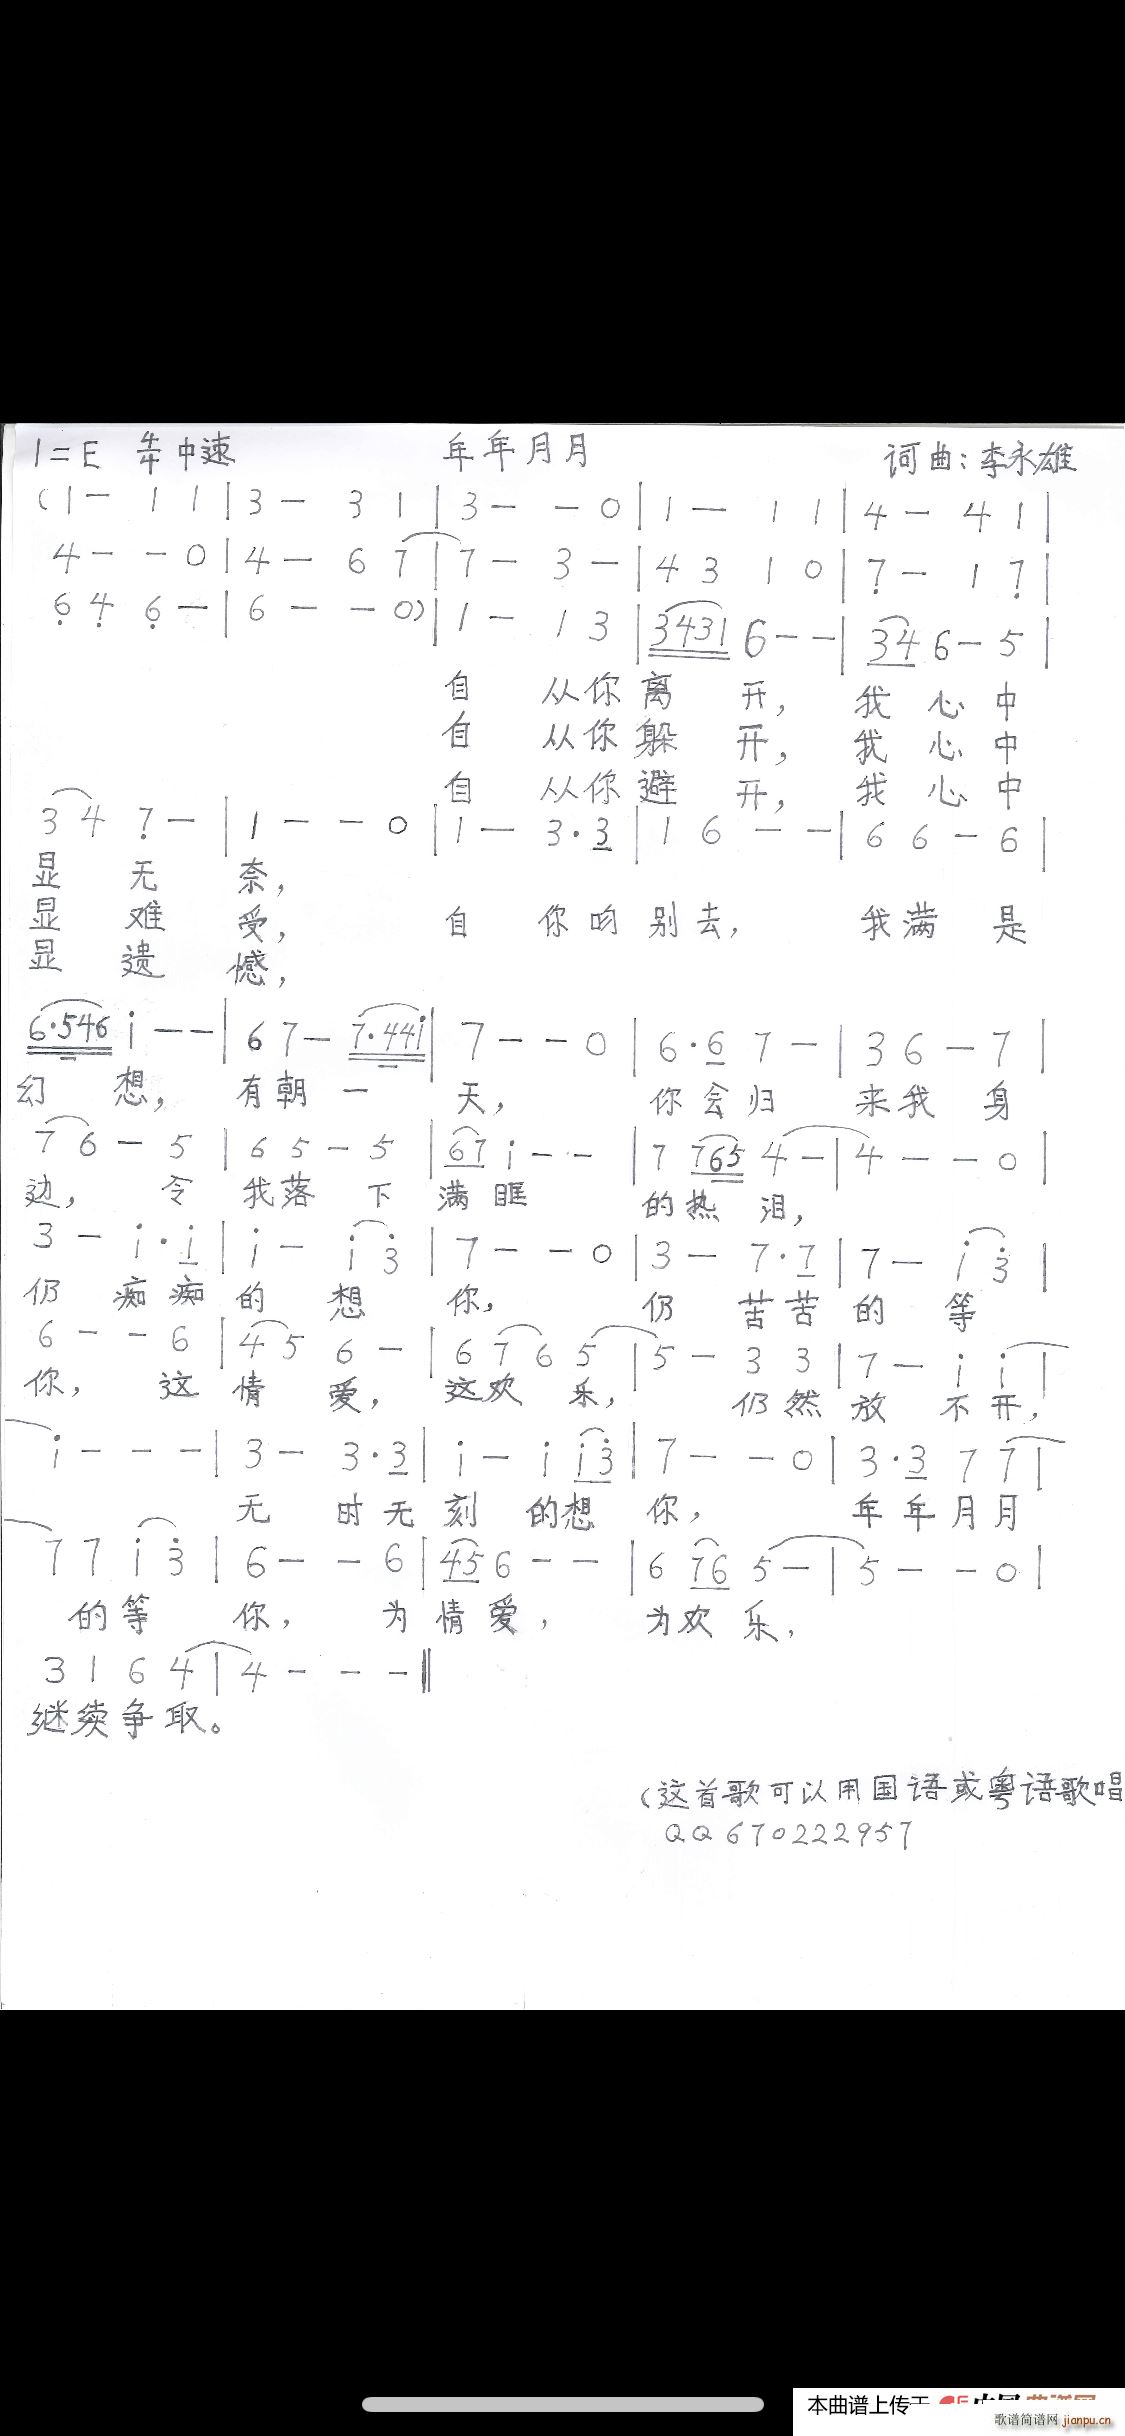 1=E 4/4 中速 年年月月 词曲：李永雄
(1 - 1 1 | 3 - 3 1 | 3 - - 0 | 1 - 1 1 | 4 - 4 1 |
4 - - 0 | 4 - 6 7 | 7 - 3 - | 4 3 1 0 | 7̣ - 1 7̣ |
6̣ 4̣ 6̣ - | 6 - - 0) | 1 - 1 3 | 3431 6 - - | 34 6 - 5 |
自 从你离 开， 我 心 中
自 从你躲 开， 我 心 中
自 从你避 开， 我 心 中
3 4 7̣ - | 1 - - 0 | 1 - 3·3 | 1 6 - - | 6 6 - 6 |
显 无 奈，
显 难 受， 自 你吻 别去， 我满 是
显 遗 憾，
6·546 i - - | 6 7 - 7·44i | 7 - - 0 | 6·6 7 - | 3 6 - 7 |
幻 想， 有朝 一 天， 你会归 来我 身
7 6 - 5 | 6 5 - 5 | 67 i - - | 7 765 4 - | 4 - - 0 |
边， 令 我落 下 满 眶 的热 泪，
3 - i·i | i - i 3̇ | 7 - - 0 | 3 - 7·7 | 7 - i 3̇ |
仍 痴痴 的 想 你， 仍 苦苦 的 等
6 - - 6 | 4 5 6 - | 6 7 6 5 | 5 - 3 3 | 7 - i i |
你， 这 情 爱， 这欢 乐， 仍然 放 不开，
i - - - | 3 - 3·3 | i - i i3̇ | 7 - - 0 | 3·3 7 7 |
无 时无 刻 的想 你， 年年月月
7 7 i 3̇ | 6 - - 6 | 45 6 - - | 6 76 5 - | 5 - - 0 |
的等 你， 为 情 爱， 为欢 乐，
3 1 6 4 | 4 - - - ‖
继续争取。
（这首歌可以用国语或粤语歌唱
QQ670222957
本曲谱上传于
歌谱简谱网 jianpu.cn